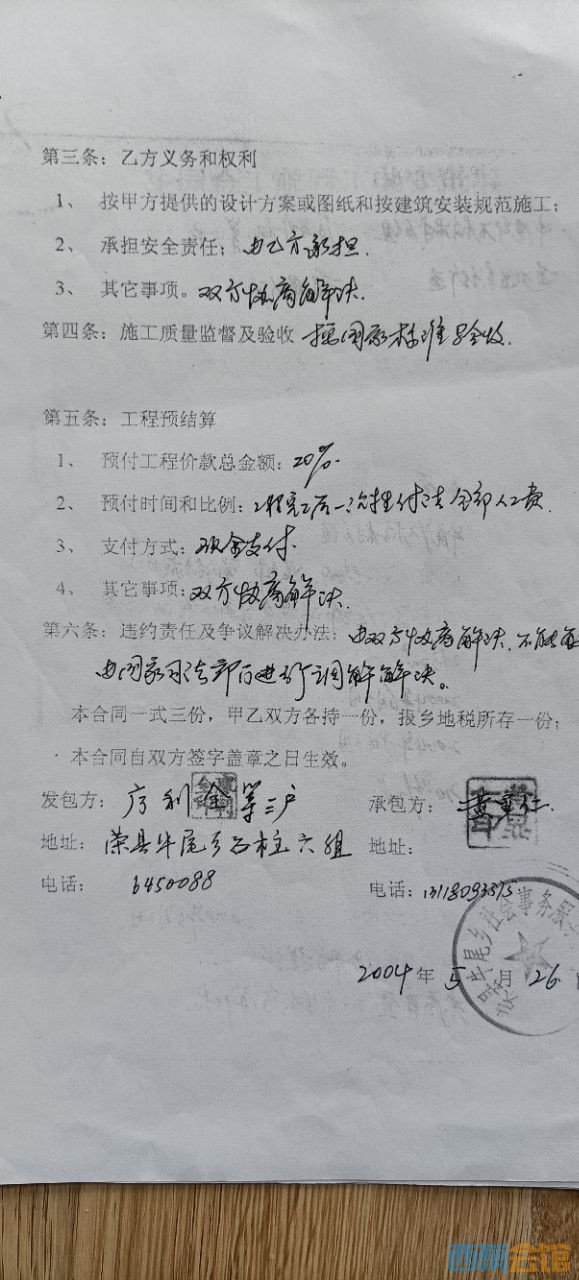 第三条：乙方义务和权利
1、 按甲方提供的设计方案或图纸和按建筑安装规范施工；
2、 承担安全责任；由乙方承担.
3、 其它事项。双方协商解决.
第四条：施工质量监督及验收 按国家标准验收.
第五条：工程预结算
1、 预付工程价款总金额：20%.
2、 预付时间和比例：工程完工后一次性付清全部人工费.
3、 支付方式：现金支付.
4、 其它事项：双方协商解决.
第六条：违约责任及争议解决办法：由双方协商解决.不能
由国家司法部门进行调解解决。
本合同一式三份，甲乙双方各持一份，报乡地税所存一份；
本合同自双方签字盖章之日生效。
发包方： 利金等三户 承包方：
地址：荣县牛尾乡石柱六组 地址：
电话： 6450088 电话：
2004年5月26
牛尾乡社会事务服
西祠会馆